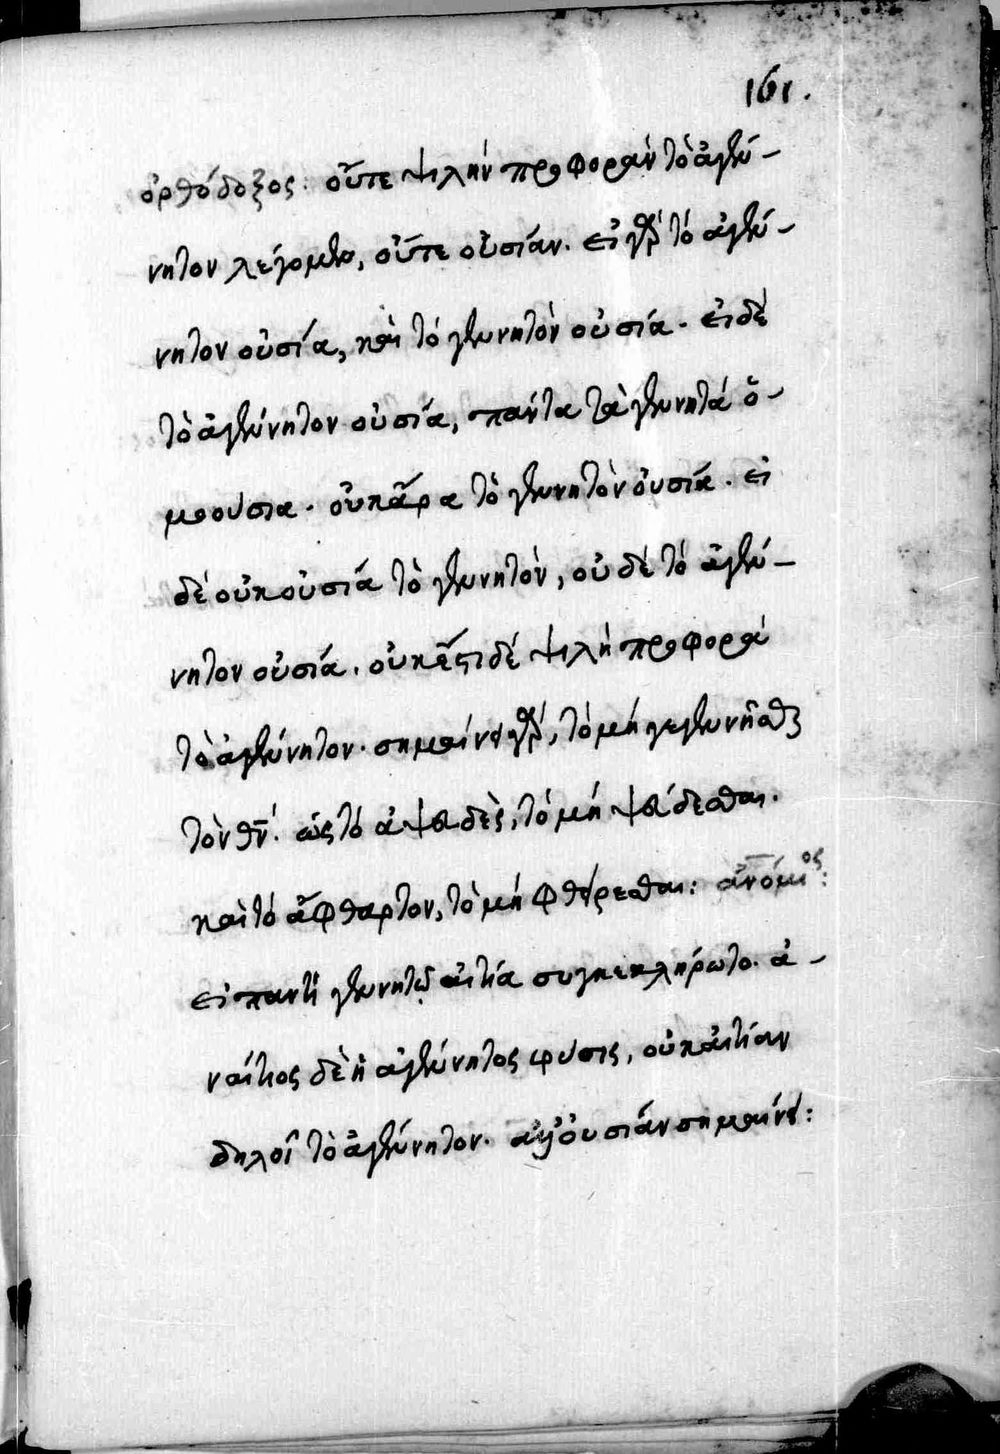 161.
ὀρθόδοξος: οὔτε ψιλὴν προφορὰν τὸ ἀγέν-
νητον λέγομεν, οὔτε οὐσίαν. εἰ γὰρ τὸ ἀγέν-
νητον οὐσία, καὶ τὸ γεννητὸν οὐσία. εἰ δὲ
τὸ ἀγέννητον οὐσία, πάντα τὰ γεννητά ὁ-
μοούσια. οὐκ ἄρα τὸ γεννητὸν οὐσία. εἰ
δὲ οὐκ οὐσία τὸ γεννητὸν, οὐδὲ τὸ ἀγέν-
νητον οὐσία. οὐκ ἔστι δέ ψιλὴ προφορὰ
τὸ ἀγέννητον. σημαίνει γὰρ, τὸ μὴ γεγεννῆσθαι
τὸν θν̅. ὡς τὸ ἀψευδὲς, τὸ μὴ ψεύδεσθαι.
καὶ τὸ ἄφθαρτον, τὸ μὴ φθείρεσθαι: ἀνόμιος:
εἰ παντὶ γεννητῷ αἰτία συγκεκλήρωται. ἀ-
ναίτιος δὲ ἡ ἀγέννητος φύσις, οὐκ αἰτίαν
δηλοῖ τὸ ἀγέννητον. ἀλλ' οὐσίαν σημαίνει: